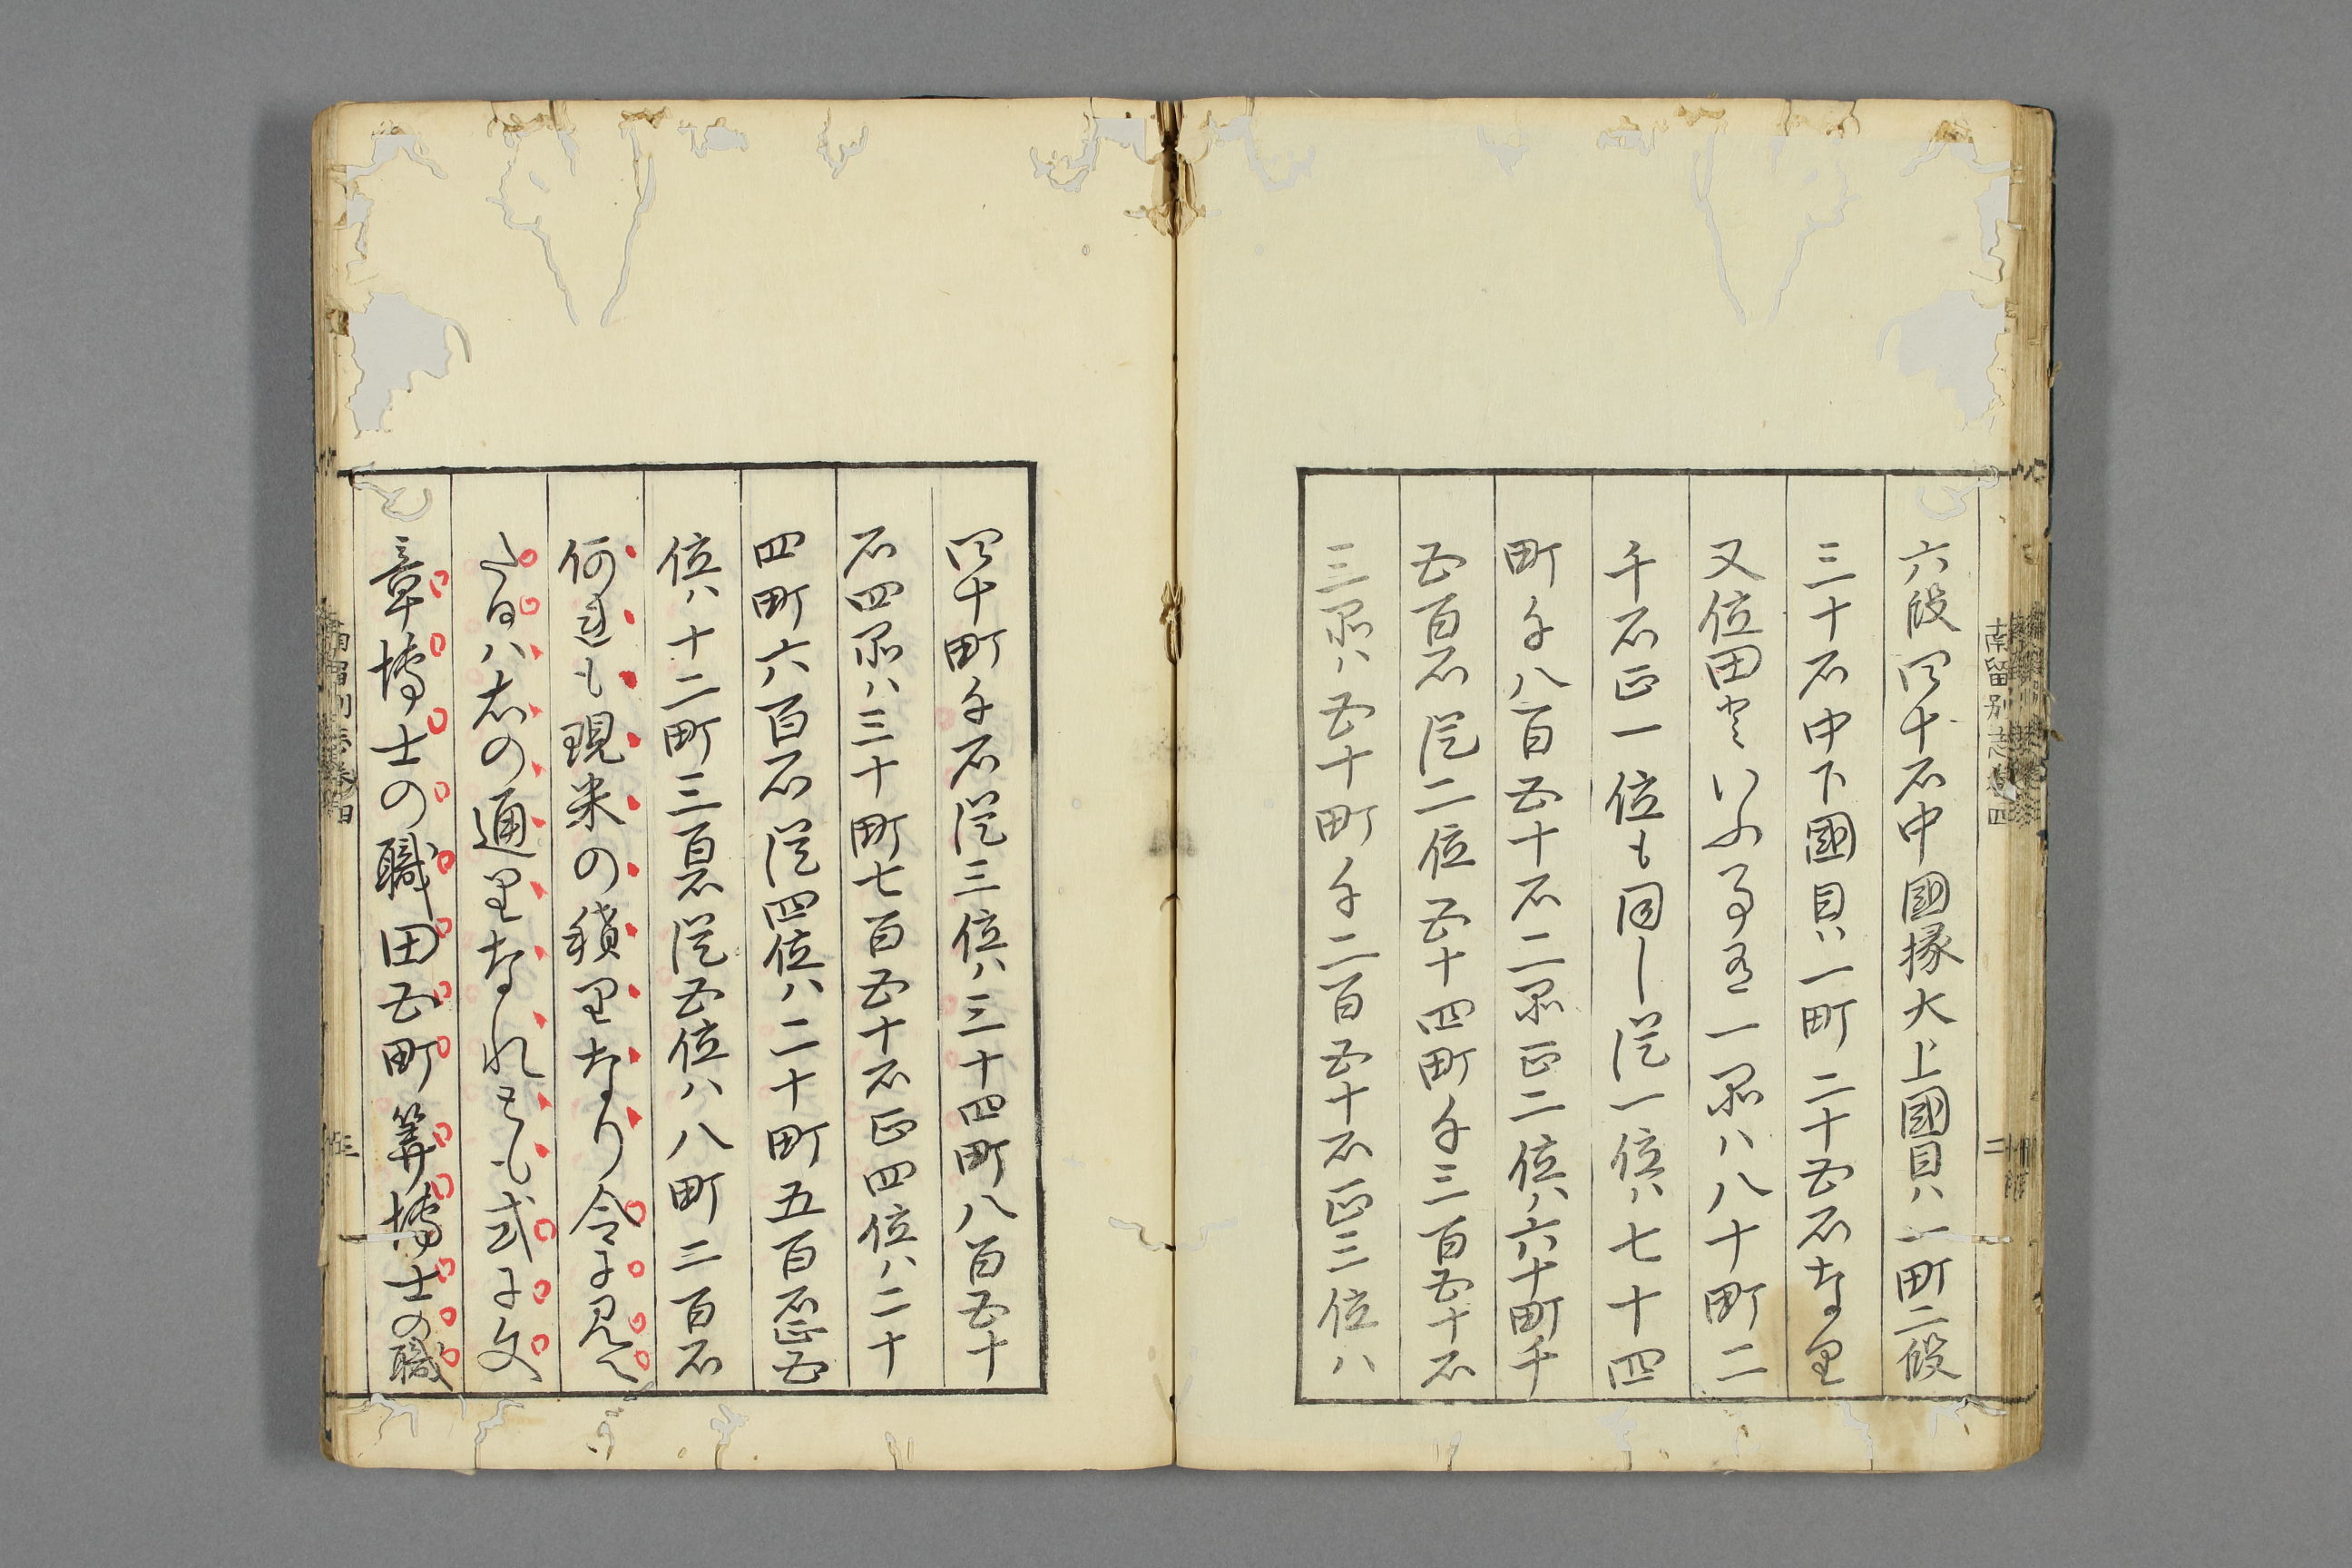 六段四十石中國掾大上國目ハ一町二段
三十石中下國目ハ一町二十五石なり
又位田といふ事有一品ハ八十町二
千石正一位も同し從一位ハ七十四
町千八百五十石二品正二位ハ六十町千
五百石從二位五十四町千三百五十石
三品ハ五十町千二百五十石正三位ハ
四十町千石從三位ハ三十四町八百五十
石四品ハ三十町七百五十石正四位ハ二十
四町六百石從四位ハ二十町五百石正五
位ハ十二町三百石從五位ハ八町二百石
何連も現米の積りなり令に見へ
たるハ右の通りなれとも式に文
章博士の職田五町筭博士の職
南留別志卷四
二
三